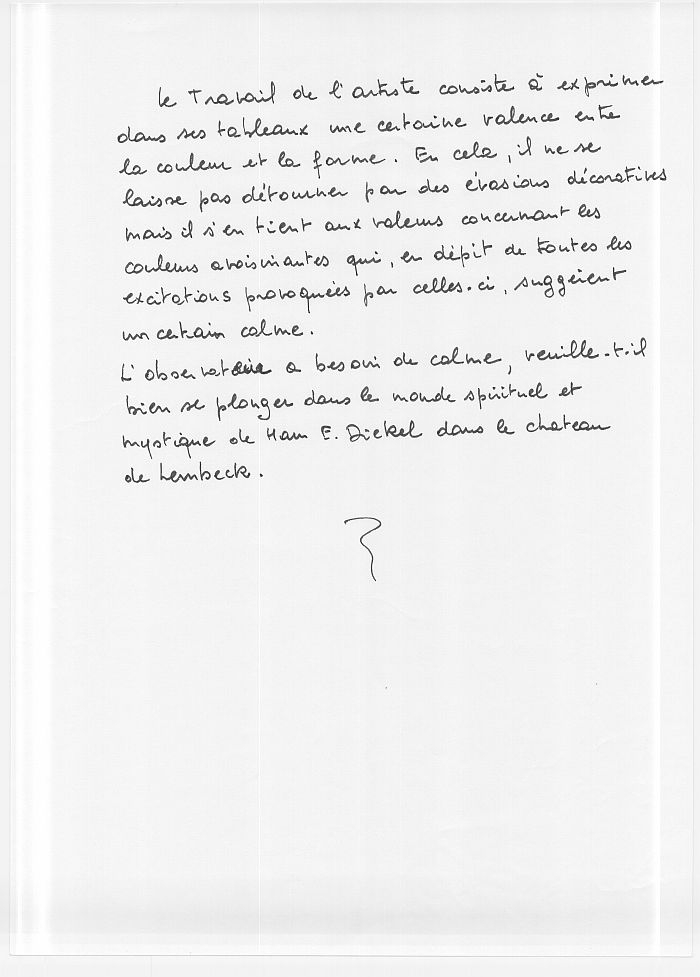 Le Travail de l'artiste consiste à exprimer
dans ses tableaux une certaine valence entre
la couleur et la forme. En cela, il ne se
laisse pas détourner par des évasions décoratives
mais il s'en tient aux valeurs concernant les
couleurs avoisinantes qui, en dépit de toutes les
excitations provoquées par celles-ci, suggèrent
un certain calme.
L'observateur a besoin de calme, veuille-t-il
bien se plonger dans le monde spirituel et
mystique de Hans E. Dickel dans le chateau
de Lembeck.